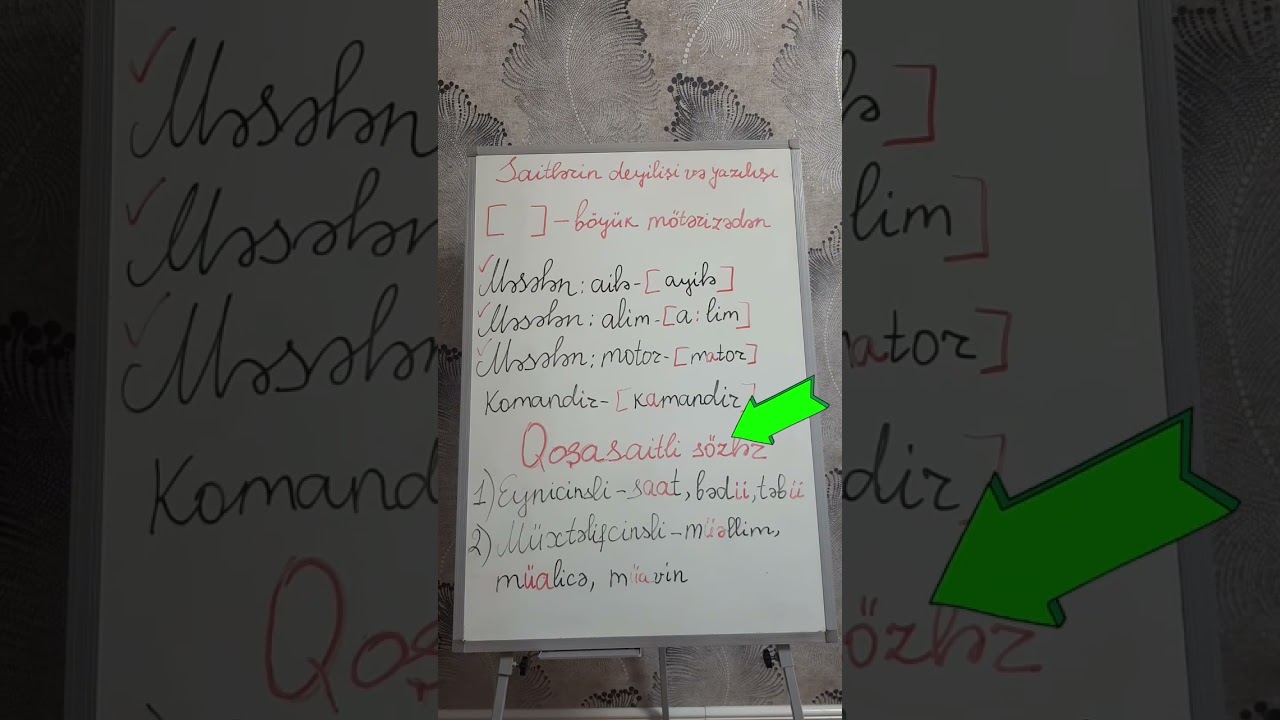 Saitlərin deyilişi və yazılışı
[ ] – böyük mötərizədən
✓Məsələn: ailə-[ayilə]
✓Məsələn: alim-[a:lim]
✓Məsələn: motor-[mator]
Komandir-[kamandir]
Qoşasaitli sözlər
1) Eynicinsli – saat, bədii, təbii
2) Müxtəlifcinsli – müəllim,
müalicə, müavin